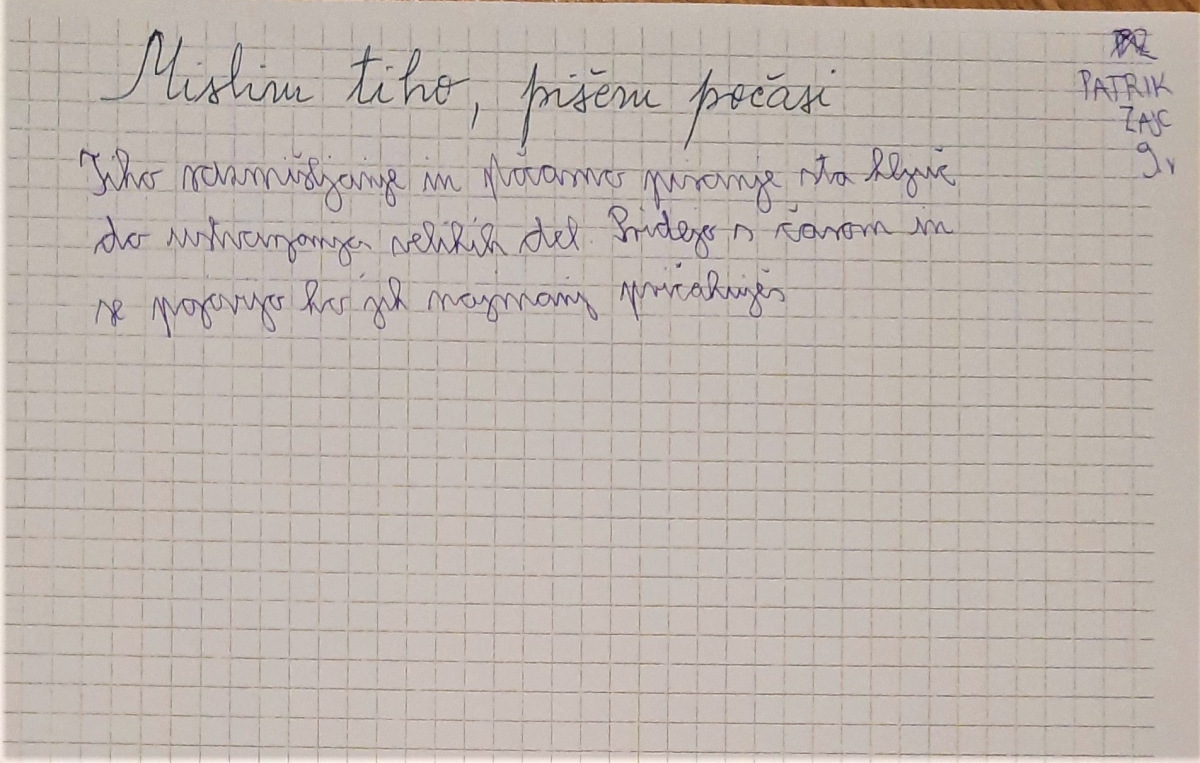 Mislim tiho, pišem počasi
PATRIK
ZAJC
9.
Tiho razmišljanje in počasno pisanje sta ključ
do ustvarjanja velikih del. Pridejo s časom in
se pojavijo ko jih najmanj pričakuješ